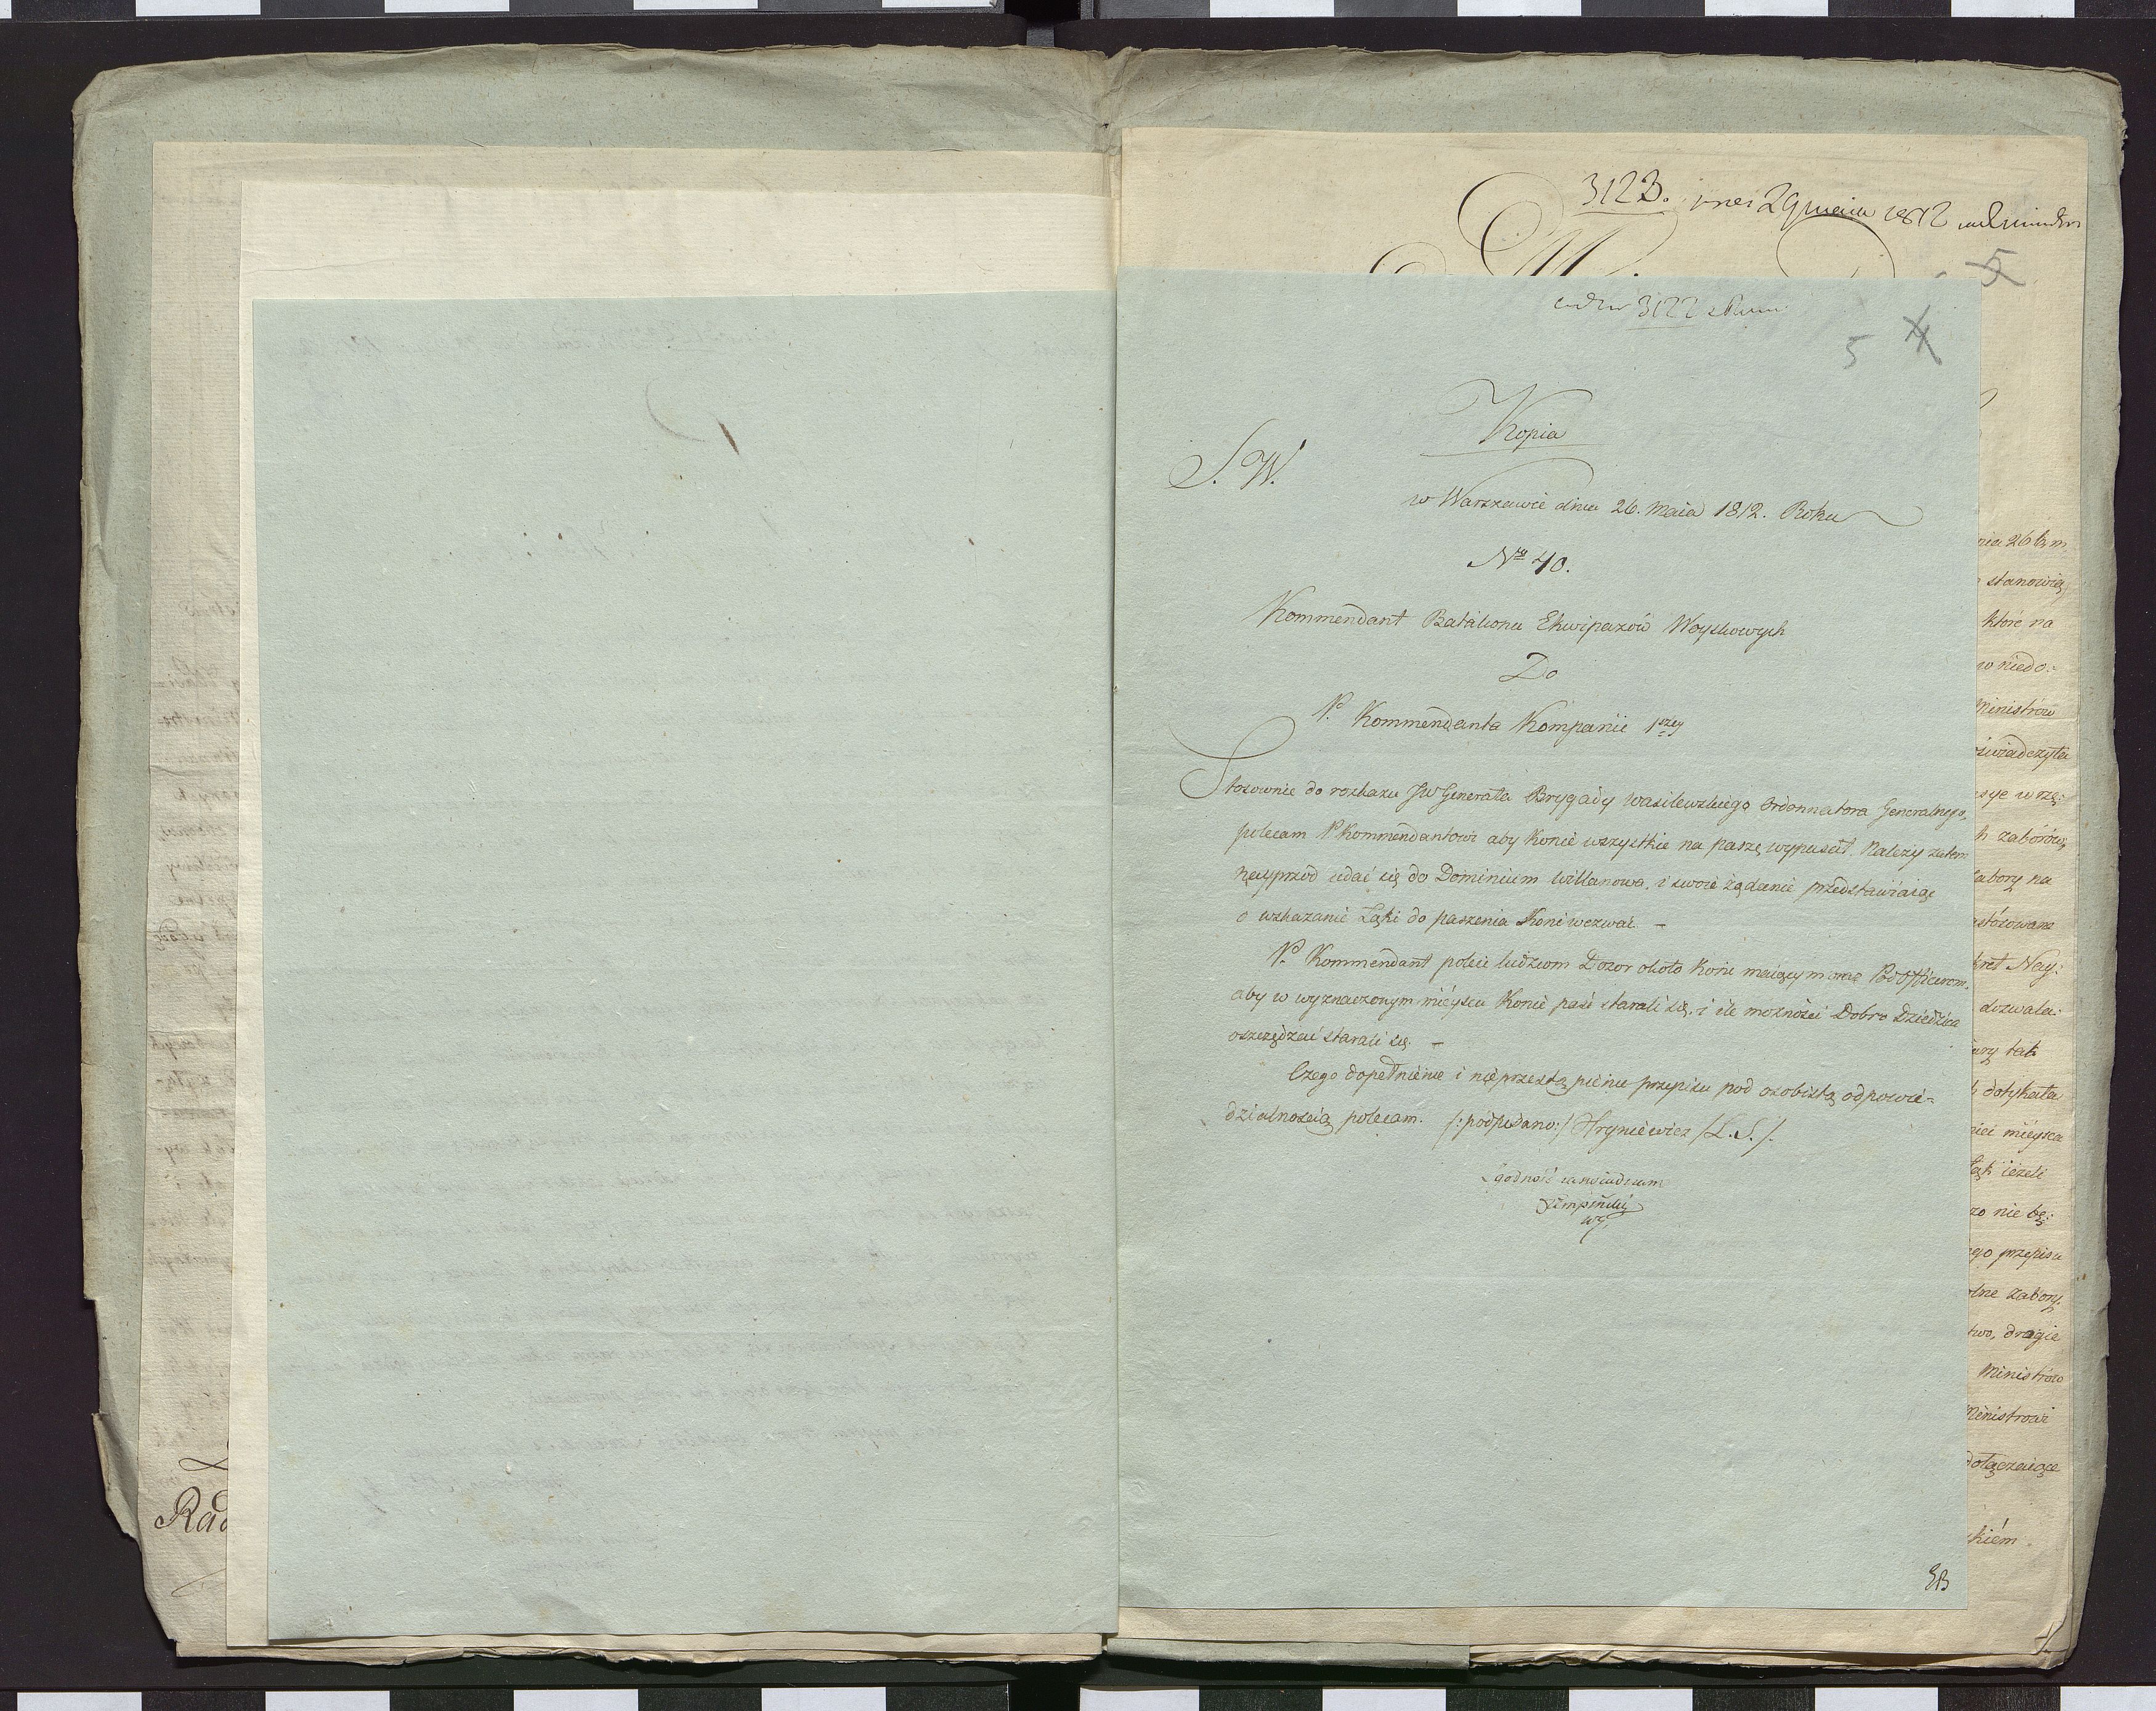 3123.
1812
5
3122
5 4
Kopia
S. W.
w Warszawie dnia 26. Maia 1812. Roku
Nro 40.
Kommendant Batalionu Ekwipazów Woyskowych
Do
P. Kommendanta Kompanii 1szey
Stosownie do rozkazu JW Generała Brygady Wasilewskiego Ordonnatora Generalnego,
polecam P Kommendantowi aby Konie wszystkie na paszę wypuscił. Należy zatem
nayprzod udać się do Dominium Willanowa, i swoie żądanie przedstawiaiąc
o wskazanie Łąki do paszenia Koni wezwać. —
P. Kommendant poleci ludziom Dozor około Koni maiącym oraz Podofficerom,
aby w wyznaczonym mieyscu Konie paść starali się, i ile możności Dobro Dziedzica
oszczędzać starali się. —
Czego dopełnienie i nieprzestąpienie przepisu pod osobistą odpowie-
dzialnością polecam. /:podpisano:/ Hryniewicz /L.S./.
Zgodność zaswiadczam
nia 26 b.m.
stanowią
które na
w niedo:
Ministrów
oświadczyła
esye wrzę:
h zaborów,
Zabory na
astosowane
kret Nay:
dozwala:
ury tak
dotykała
niei mieysca
Łąk ieżeli
zo nie bę:
ego przepisu
olne zabory
two, drogie
Ministrów
Ministrowi
dołączaiące
kiém.
Rad